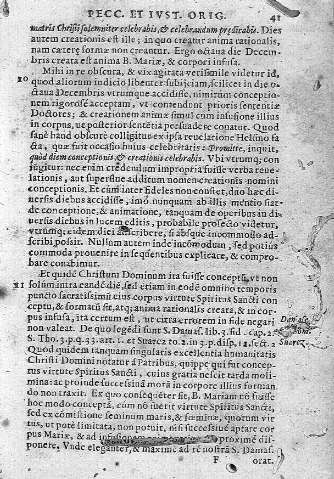 PECC. ET IVST. ORIG. 41
matris Christi solemniter celebrabis, & celebrandum prædicabis. Dies
autem creationis est ille; in quo creatur anima rationalis,
nam cæteræ formæ non creantur. Ergo octaua die Decem-
bris creata est anima B. Mariæ, & corpori infusa.
Mihi in re obscura, & vix agitata verisimile videtur id,
20 quod aliorum iudicio libenter subijciam, scilicet in die o-
ctaua Decembris vtrumque accidisse, nimirum conceptio-
nem rigorose acceptam, vt contendunt prioris sententiæ
Doctores; & creationem animæ simul cum infusione illius
in corpus, vt posterior sententia persuadere conatur. Quod
sane haud obscure colligitur ex ipsa reuelatione Helsino fa-
cta, quæ fuit occasio huius celebritatis: Promitte, inquit,
quod diem conceptionis & creationis celebrabis. Vbi vtrumq; con-
iungitur: nec enim credendum impropria fuisse verba reue-
lationis, aut superflue additum nomen creationis nomini
conceptionis. Et cum inter fideles non constet, duo hæc di-
uersis diebus accidisse, imo nunquam ab illis mentio fiat
de conceptione, & animatione, tanquam de operibus in di-
uersis diebus in lucem editis, probabile profecto videtur,
vtrumq; eidem diei adscribere, si absque incommodo ad-
scribi possit. Nullum autem inde incommodum, sed potius
commoda prouenire in sequentibus explicare, & compro-
bare conabimur.
Et quidem Christum Dominum ita fuisse conceptum, vt non
21 solum intra eandem diem, sed etiam in eodem omnino temporis
puncto sacratissimum eius corpus virtute Spiritus Sancti con-
ceptum, & formatum sit, atq; anima rationalis creata, & in cor-
pus infusa, ita certum est, vt citra errorem in fide negari
non valeat. De quo legendi sunt S. Damas. lib. 3. fid. cap. 2.
S. Tho. 3. p. q. 33. art. 1. et Suarez to. 2. in 3. p. disp. 12. sect. 2
Suarez.
Quod quidem tanquam singularis excellentia humanitatis
Christi Domini notatur à Patribus, quippe qui fuit concep-
tus virtute Spiritus Sancti, cuius gratia nescit tarda moli-
mina: ac proinde successiuam moram in corpore illius formando
do non traxit. Ex quo consequenter fit, B. Mariam non fuisse
hoc modo conceptam, cum non fuerit virtute Spiritus Sancti,
sed ex commistione seminum maris, & fœminæ, quorum vir-
tus, vt pote limitata, non potuit, nisi successiue aptare cor
pus Mariæ, & ad infusionem proxime dis-
ponere, Vnde eleganter, & maxime ad rem nostram S. Damas.
F orat.